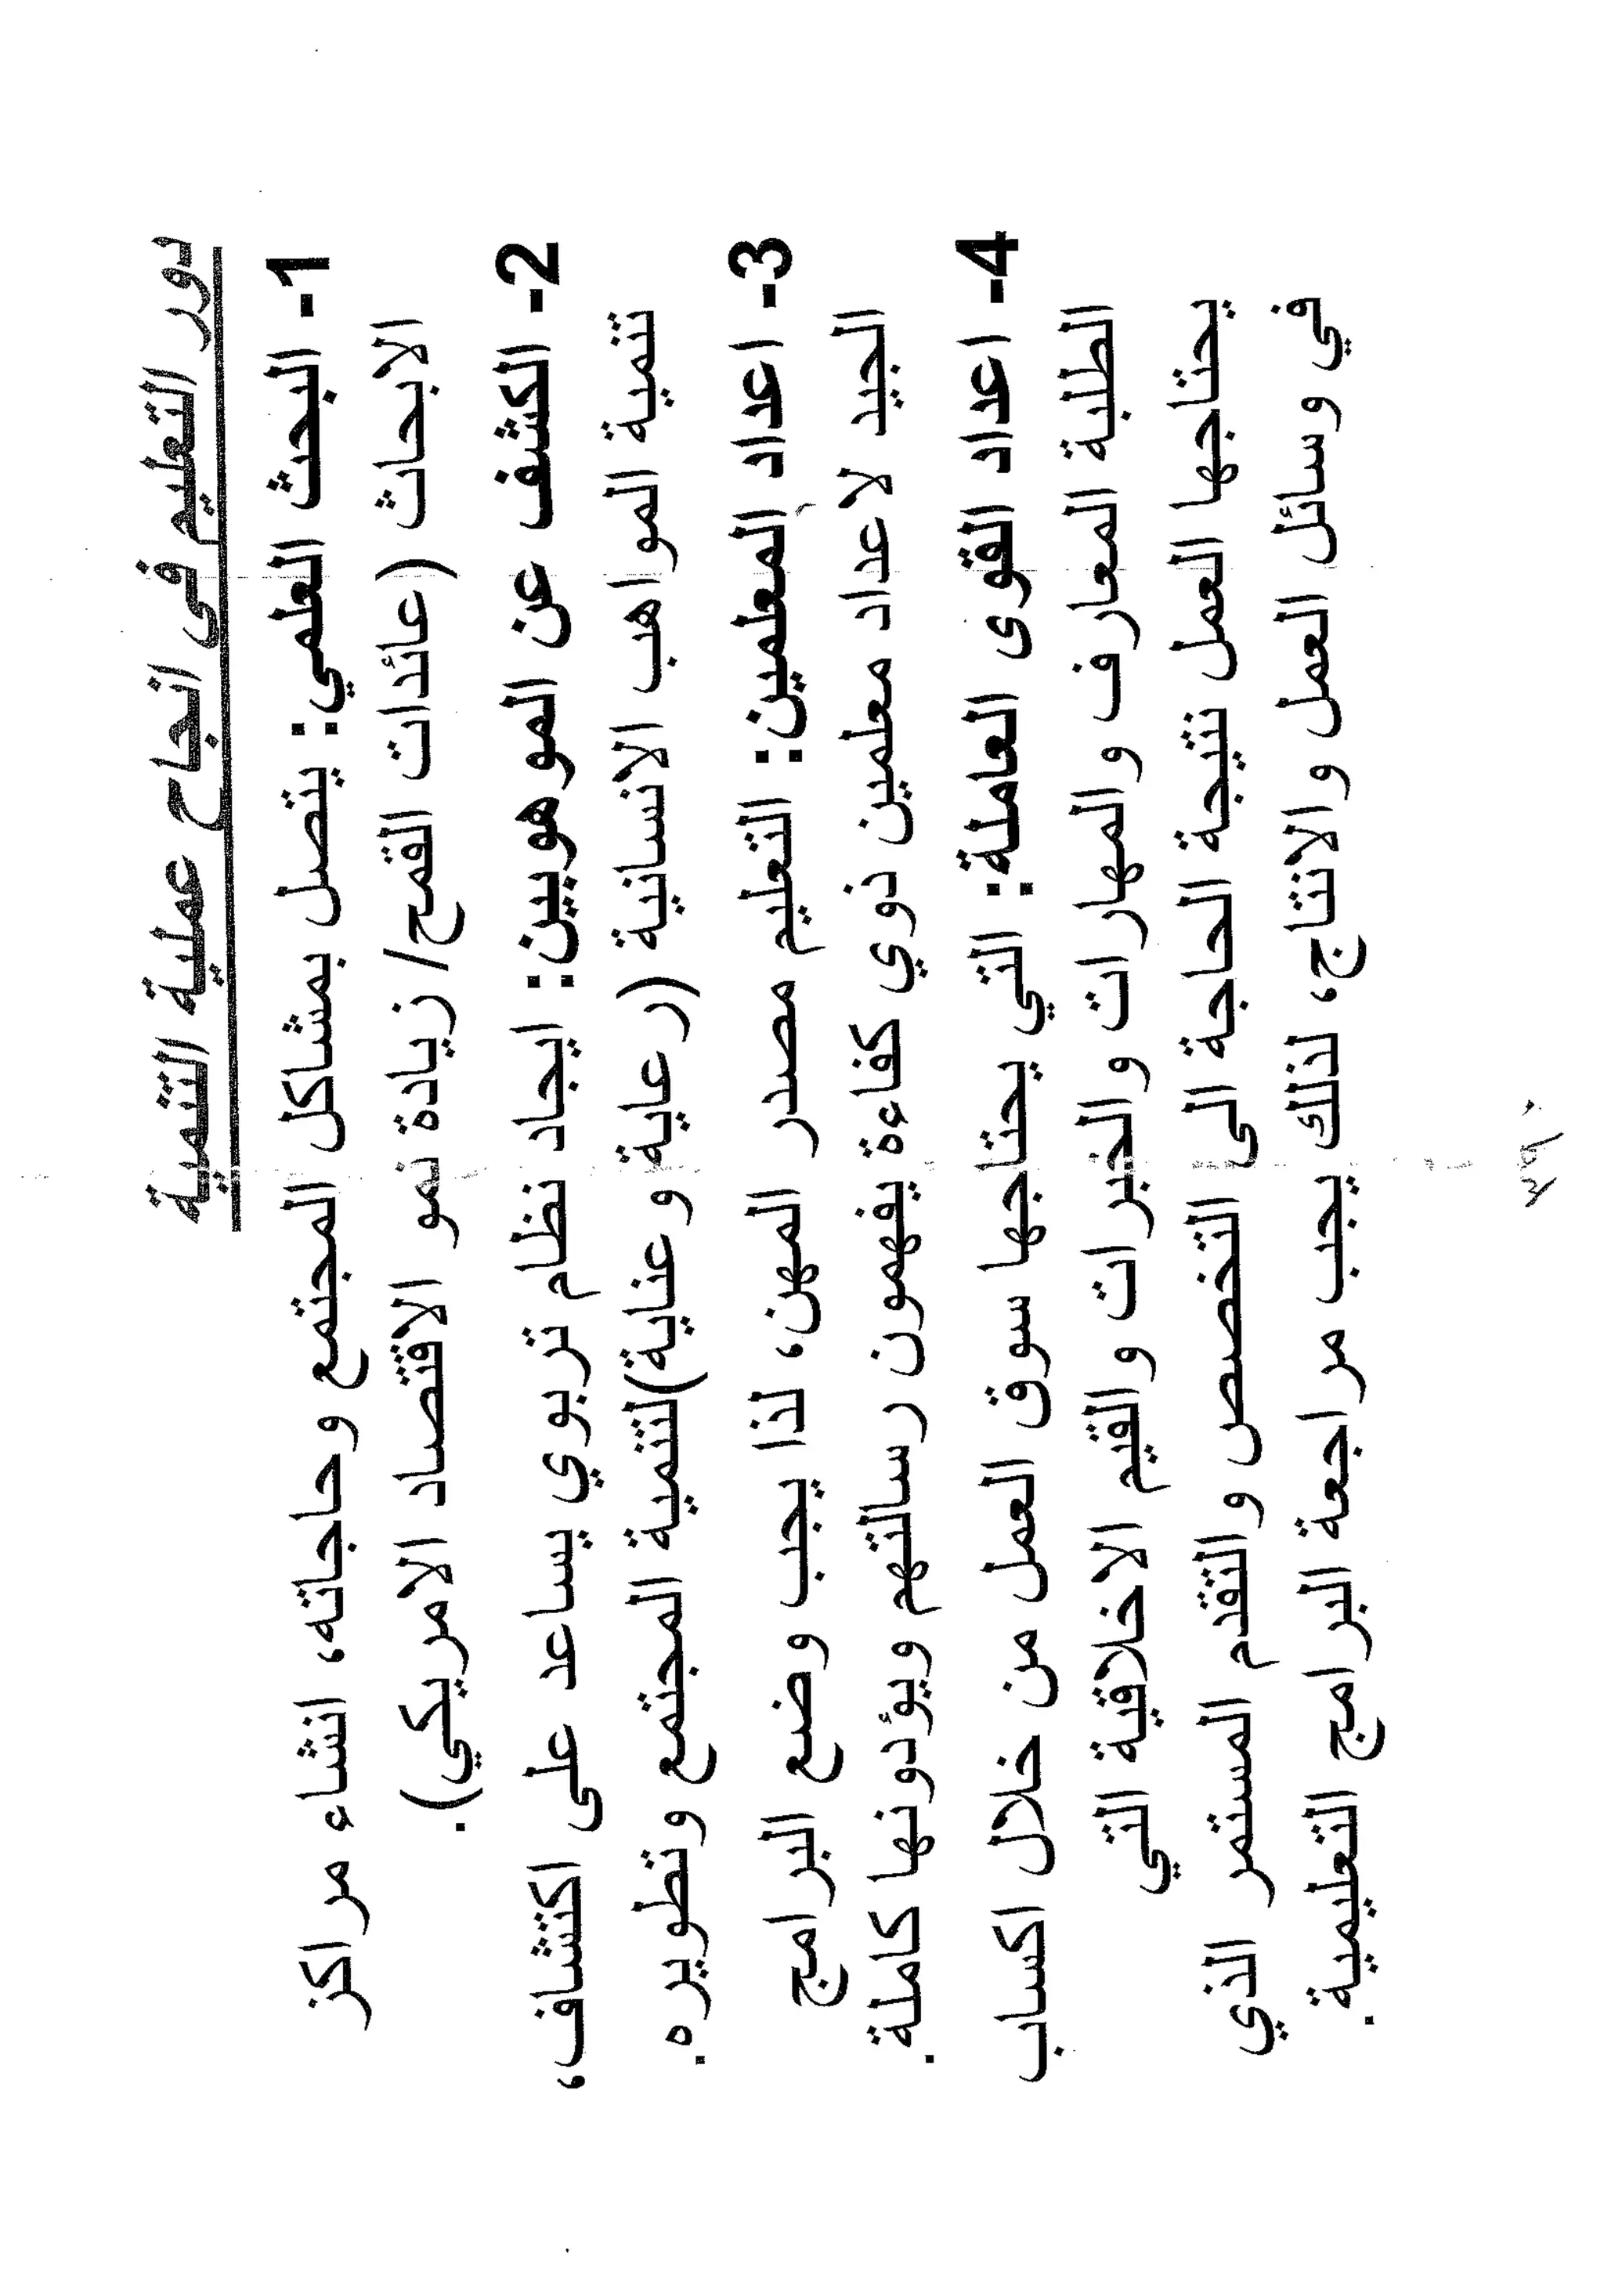 دور التعليم في انجاح عملية التنمية
1- البحث العلمي: يتصل بمشاكل المجتمع وحاجاته، انشاء مراكز
الابحاث (عائدات القمح/ زيادة نمو الاقتصاد الامريكي).
2- الكشف عن الموهوبين: ايجاد نظام تربوي يساعد على اكتشاف،
تنمية المواهب الانسانية (رعاية وعناية)لتنمية المجتمع وتطويره.
3- اعداد المعلمين: التعليم مصدر المهن، لذا يجب وضع البرامج
الجيد لاعداد معلمين ذوي كفاءة يفهمون رسالتهم ويؤدونها كاملة.
4- اعداد القوى العاملة: التي يحتاجها سوق العمل من خلال اكساب
الطلبة المعارف والمهارات والخبرات والقيم الاخلاقية التي
يحتاجها العمل نتيجة الحاجة الى التخصص والتقدم المستمر الذي
في وسائل العمل والانتاج، لذلك يجب مراجعة البرامج التعليمية.